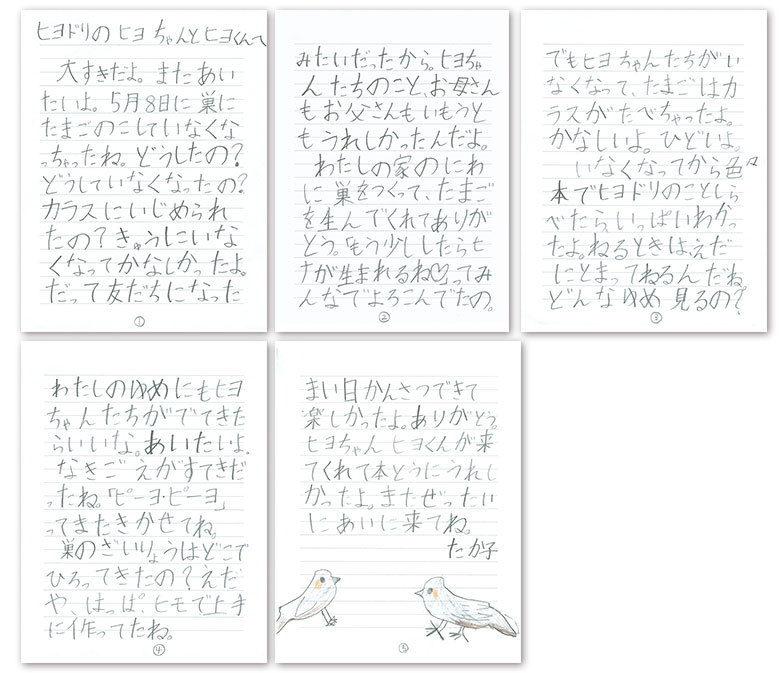 ヒヨドリのヒヨちゃんとヒヨくんへ
大すきだよ。またあい
たいよ。5月8日に巣に
たまごのこしていなくな
っちゃったね。どうしたの?
どうしていなくなったの?
カラスにいじめられ
たの?きゅうにいな
くなってかなしかったよ。
だって友だちになった
①
みたいだったから。ヒヨちゃ
んたちのこと、お母さん
もお父さんもいもうと
もうれしかったんだよ。
わたしの家のにわ
に巣をつくって、たまご
を生んでくれてありが
とう。「もう少ししたらヒ
ナが生まれるね♡」ってみ
んなでよろこんでたの。
②
でもヒヨちゃんたちがい
なくなって、たまごはカ
ラスがたべちゃったよ。
かなしいよ。ひどいよ。
いなくなってから色々
本でヒヨドリのことしら
べたら、いっぱいわかっ
たよ。ねるときは、えだ
にとまってねるんだね。
どんなゆめ見るの?
③
わたしのゆめにもヒヨ
ちゃんたちがでてきた
らいいな。あいたいよ。
なきごえがすてきだ
ったね。「ピーヨ・ピーヨ」
ってまたきかせてね。
巣のざいりょうはどこで
ひろってきたの?えだ
や、はっぱ、ヒモで上手
に作ってたね。
④
まい日かんさつできて
楽しかったよ。ありがとう。
ヒヨちゃんヒヨくんが来
てくれて本とうにうれし
かったよ。またぜったい
にあいに来てね。
たか子
⑤